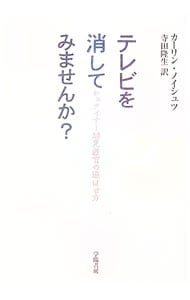 カーリン・ノイシュツ
寺田隆生 訳
テレビを
消して
シュタイナー幼児教育の遊ばせ方
みませんか?
学陽書房